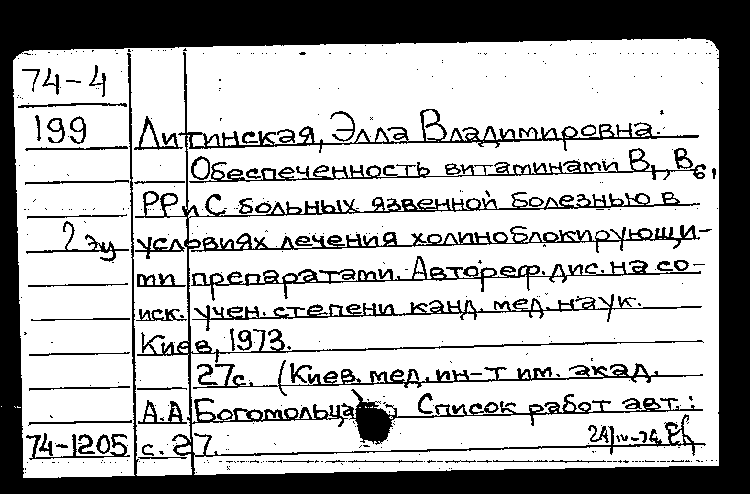 74-4
199 Литинская, Элла Владимировна.
Обеспеченность витаминами В1, В6,
РР и С больных язвенной болезнью в
2 эц условиях лечения холиноблокирующи-
ми препаратами. Автореф. дис. на со-
иск. учен. степени канд. мед. наук.
Киев, 1973.
27с. (Киев. мед. ин-т им. акад.
А.А. Богомольца Список работ авт.:
74-1205 с. 27.